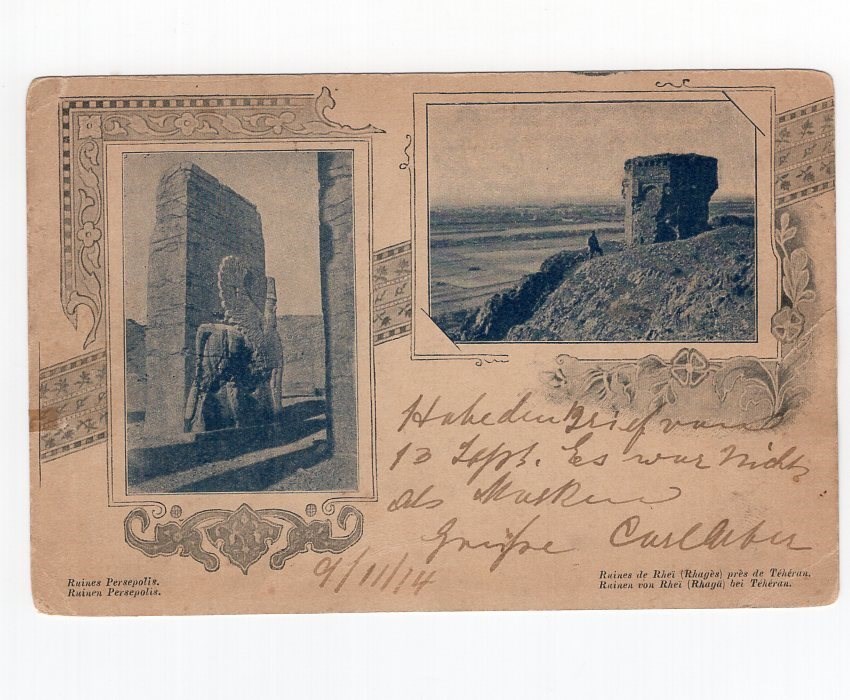 Habe den Brief vom
13 Sept. Es war Nichts
als Masken
Grüsse Carl
9/11/14
Ruines Persepolis.
Ruinen Persepolis.
Ruines de Rheï (Rhagès) près de Téhéran.
Ruinen von Rheï (Rhagä) bei Téhéran.